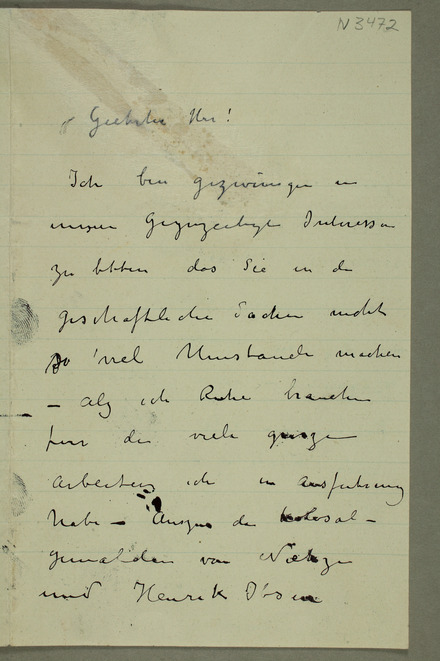 N 3472
Geehrter Herr!
Ich bin gezwungen in
unsere Gegenzeitige Interesse
zu bitten das Sie in de
geschäftliche Sachen nicht
so viel Umstande machen
– als ich Ruhe brauche
fur die viele grosse
Arbeiten ich in ausfuhrung
habe – de kolosal–
gemalden von
und Henrik Ibsen